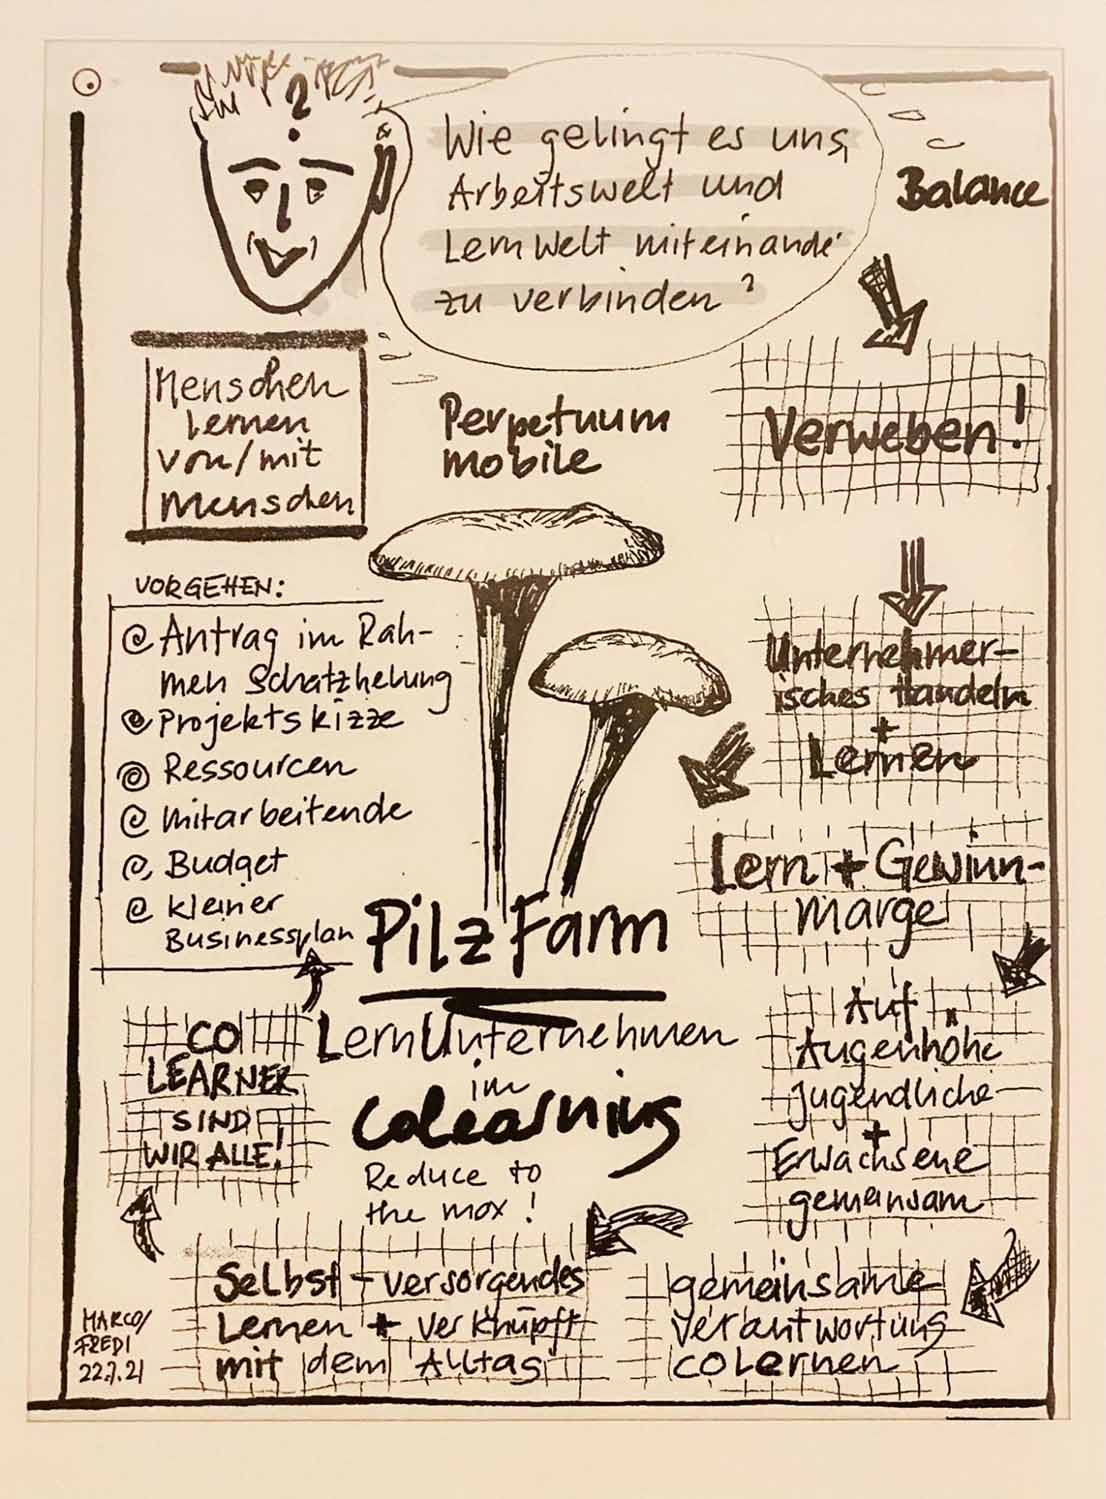 ?
Wie gelingt es uns,
Arbeitswelt und
Lernwelt miteinander
zu verbinden?
Balance
Menschen
lernen
von/mit
Menschen
Perpetuum
mobile
Verweben!
VORGEHEN:
Antrag im Rah-
men Schatzhebung
Projektskizze
Ressourcen
Mitarbeitende
Budget
kleiner
Businessplan
Unternehmer-
isches Handeln
+
Lernen
Lern + Gewinn-
marge
PilzFarm
LernUnternehmen
im
Colearning
Reduce to
the max!
Auf
Augenhöhe
jugendliche
+
Erwachsene
gemeinsam
gemeinsame
verantwortung
colernen
Selbst-versorgendes
Lernen + verknüpft
mit dem Alltag
CO
LEARNER
SIND
WIR ALLE!
MARCO/
FREDI
22.7.21